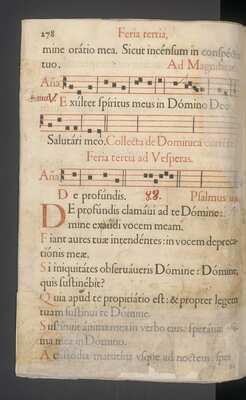 278 Feria tertia,
mine orátio mea. Sicut incénsum in conspéctu
tuo. Ad Magnificat
Aña
E xúltet spíritus meus in Dómino Deo
Salutári meo. Collecta de Dominica
Feria tertia ad Vesperas.
Aña
D e profúndis. Psalmus
DE profúndis clamáui ad te Dómine:
mine exaudi vocem meam.
F iant aures tuæ intendéntes: in vocem depreca-
tiónis meæ.
S i iniquitátes obseruáueris Dómine: Dómine,
quis sustinébit?
Q uia apud te propitiátio est: & propter legem
tuam sustínui te Dómine.
S ustínuit ánima mea in verbo eius: speráuit
ma mea in Dómino.
A custódia matutína vsque ad noctem: